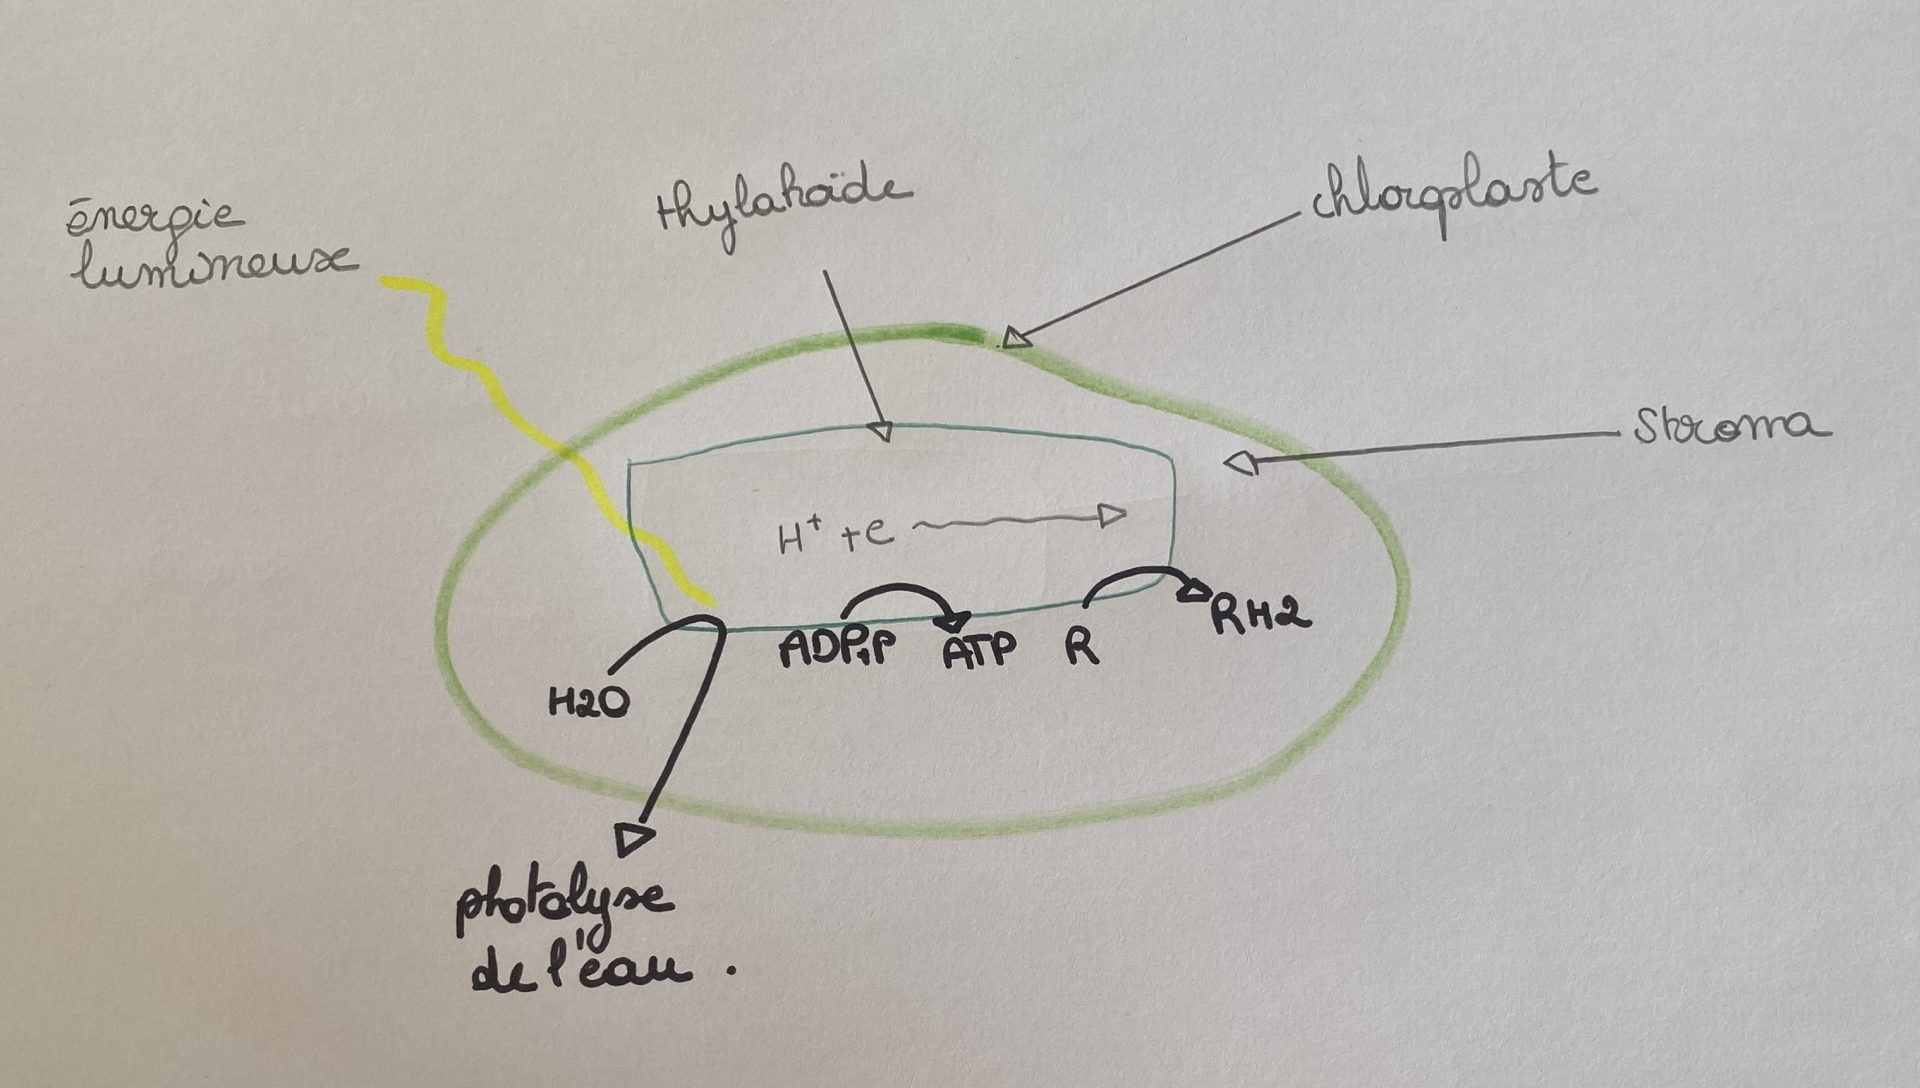 énergie
lumineuse
thylakoïde
chloroplaste
Stroma
H+ +e
ADP+P
ATP
R
RH2
H2O
photolyse
de l'eau.